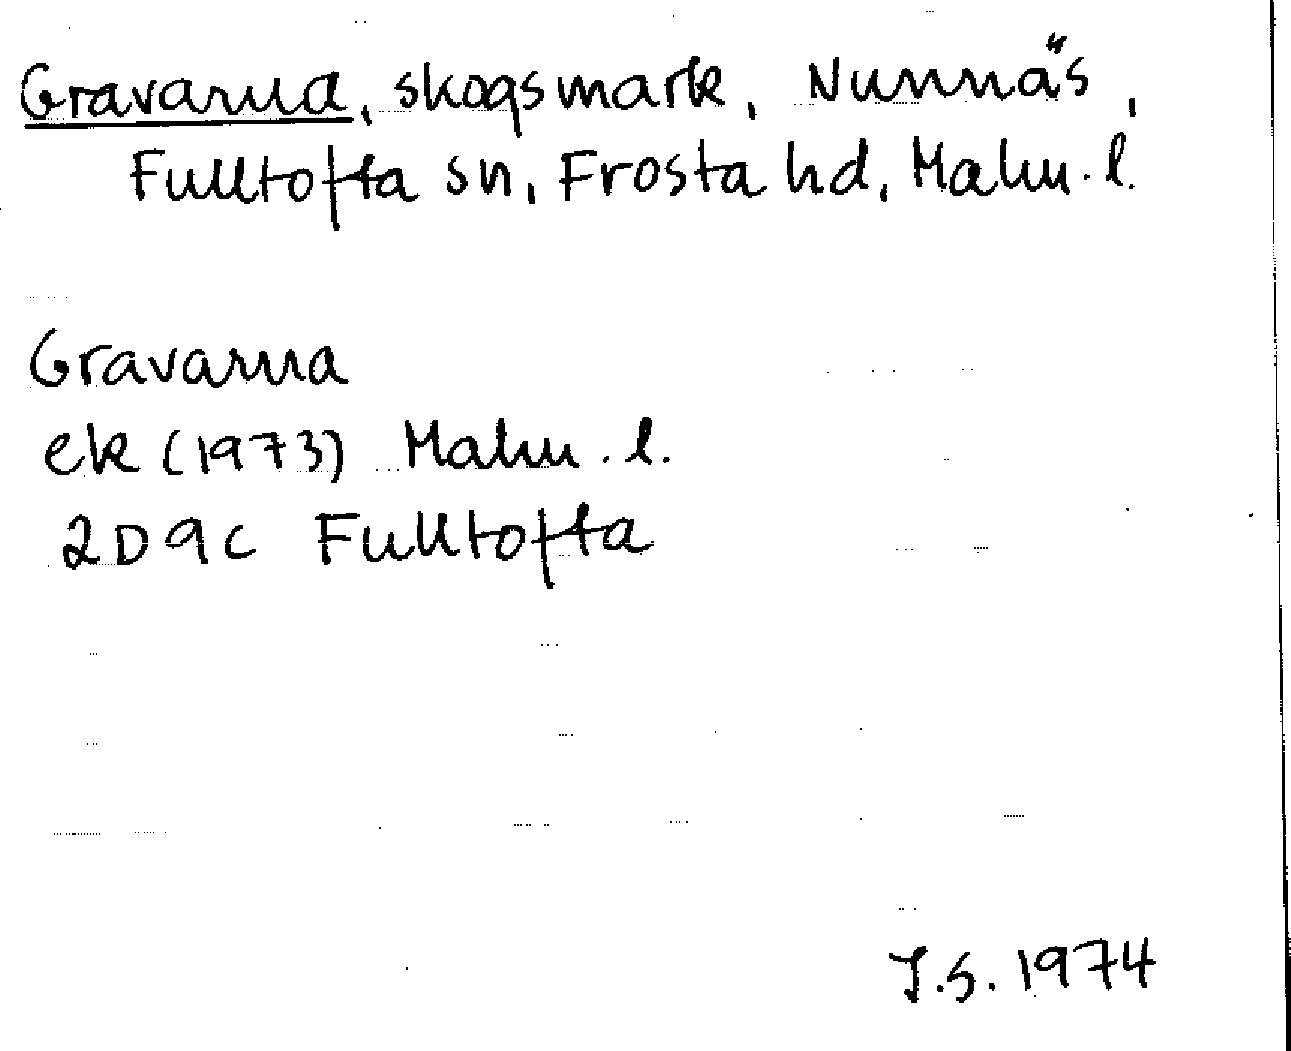 Gravarna, skogsmark, Nunnäs,
Fulltofta sn, Frosta hd, Malm. l.
Gravarna
ek (1973) Malm. l.
2D 9c Fulltofta
J.S. 1974